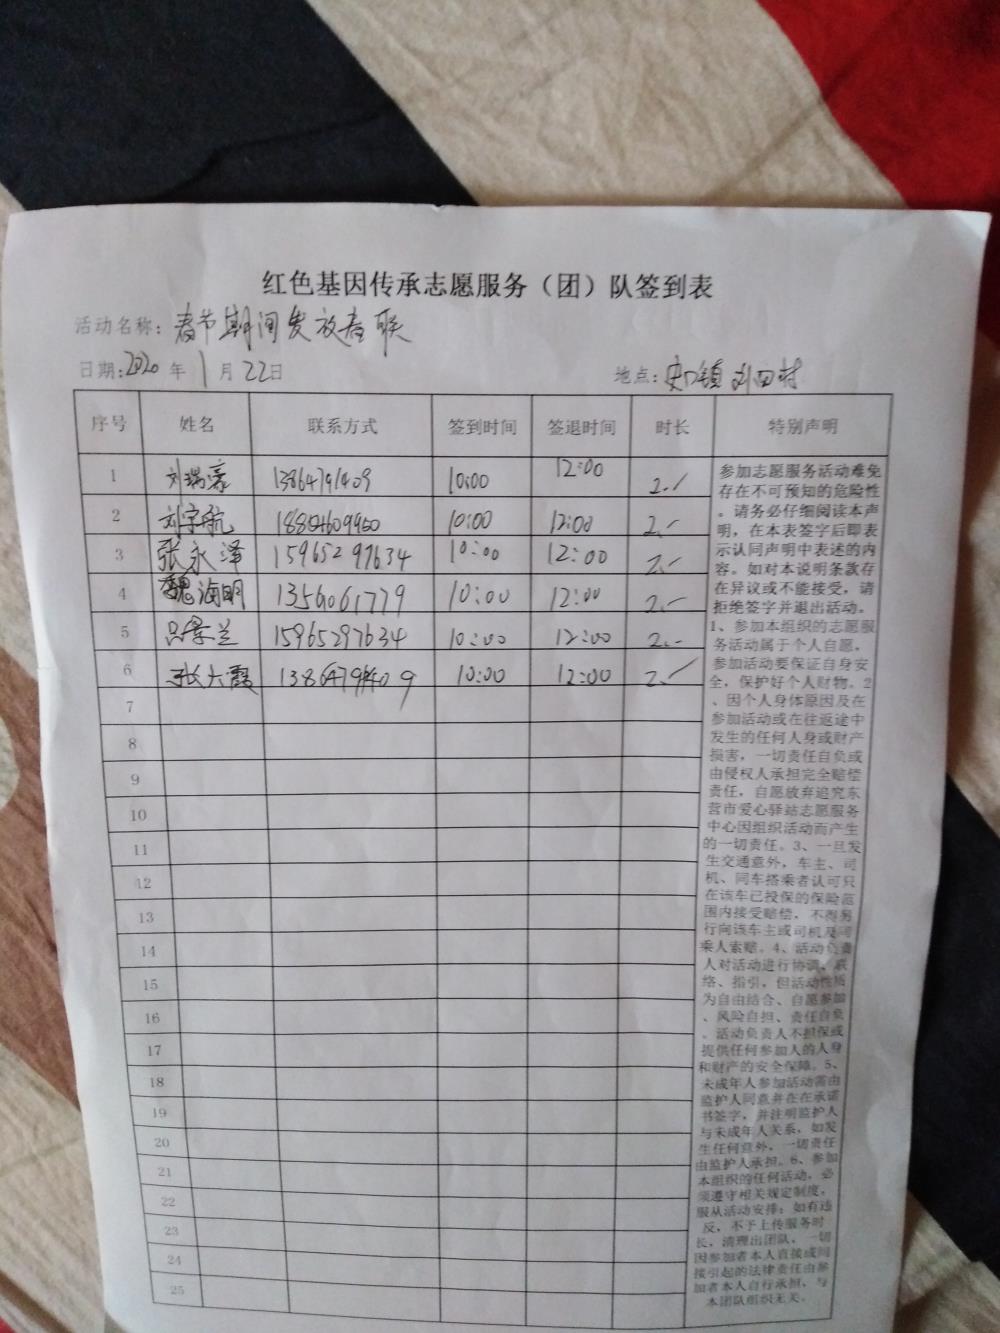 红色基因传承志愿服务（团）队签到表
活动名称：春节期间发放春联
日期：2020 年 1 月 22 日 地点：史口镇刘田村
序号 姓名 联系方式 签到时间 签退时间 时长 特别声明
1 刘瑞豪 13864791409 10:00 12:00 2
2 刘宇航 10:00 12:00 2
3 张永泽 15965297634 10:00 12:00 2
4 魏海明 13561061779 10:00 12:00 2
5 吕景兰 15965297634 10:00 12:00 2
6 张大霞 13864791409 10:00 12:00 2
7
8
9
10
11
12
13
14
15
16
17
18
19
20
21
22
23
24
25
参加志愿服务活动难免
存在不可预知的危险性
。请务必仔细阅读本声
明，在本表签字后即表
示认同声明中表述的内
容。如对本说明条款存
在异议或不能接受，请
拒绝签字并退出活动。
1、参加本组织的志愿服
务活动属于个人自愿，
参加活动要保证自身安
全，保护好个人财物。2
、因个人身体原因及在
参加活动或在往返途中
发生的任何人身或财产
损害，一切责任自负或
由侵权人承担完全赔偿
责任，自愿放弃追究东
营市爱心驿站志愿服务
中心因组织活动而产生
的一切责任。3、一旦发
生交通意外，车主、司
机、同车搭乘者认可只
在该车已投保的保险范
围内接受赔偿，不得另
行向该车主或司机及同
乘人索赔。4、活动负责
人对活动进行协调、联
络、指引，但活动性质
为自由结合、自愿参加
、风险自担、责任自负
。活动负责人不担保或
提供任何参加人的人身
和财产的安全保障。5、
未成年人参加活动需由
监护人同意并在在承诺
书签字，并注明监护人
与未成年人关系，如发
生任何意外，一切责任
由监护人承担。6、参加
本组织的任何活动，必
须遵守相关规定制度，
服从活动安排；如有违
反，不予上传服务时
长，清理出团队，一切
因参加者本人直接或间
接引起的法律责任由参
加者本人自行承担，与
本团队组织无关。